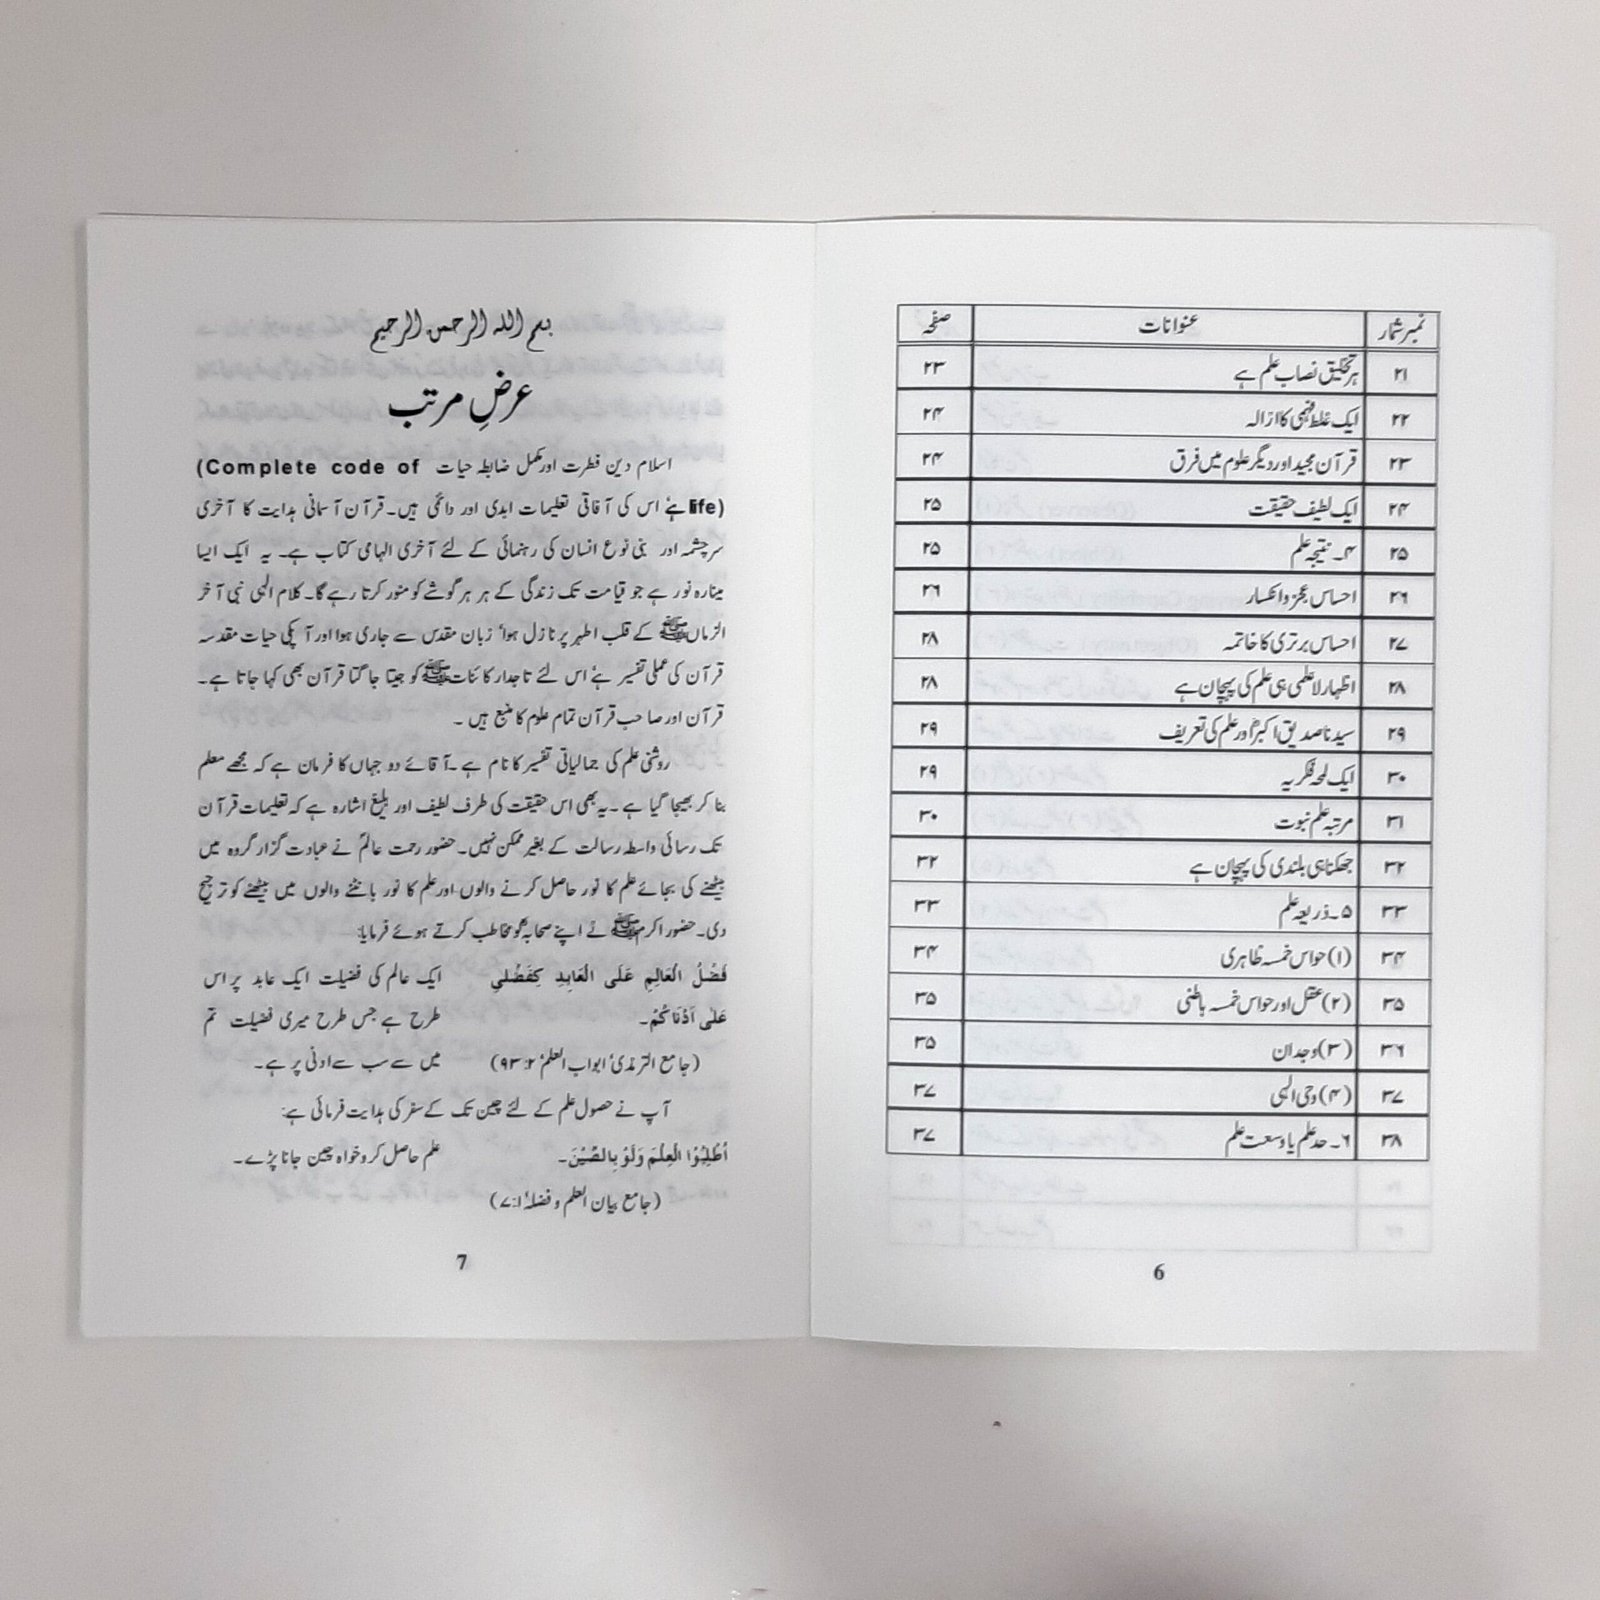 نمبر شمار	عنوانات	صفحہ
۲۱	ہر تخلیق نصاب علم ہے	۲۳
۲۲	ایک غلط فہمی کا ازالہ	۲۴
۲۳	قرآن مجید اور دیگر علوم میں فرق	۲۴
۲۴	ایک لطیف حقیقت	۲۵
۲۵	۴۔ نتیجہ علم	۲۵
۲۶	احساس عجز و انکسار	۲۶
۲۷	احساس برتری کا خاتمہ	۲۸
۲۸	اظہار لاعلمی ہی علم کی پہچان ہے	۲۸
۲۹	سیدنا صدیق اکبرؓ اور علم کی تعریف	۲۹
۳۰	ایک لمحہ فکریہ	۲۹
۳۱	مرتبہ علم نبوت	۳۰
۳۲	جھکنا ہی بلندی کی پہچان ہے	۳۲
۳۳	۵۔ ذریعہ علم	۳۳
۳۴	(۱) حواس خمسہ ظاہری	۳۴
۳۵	(۲) عقل اور حواس خمسہ باطنی	۳۵
۳۶	(۳) وجدان	۳۵
۳۷	(۴) وحی الہی	۳۷
۳۸	۶۔ حد علم یا وسعت علم	۳۷
6
بسم اللہ الرحمن الرحیم
عرضِ مرتب
اسلام دین فطرت اور مکمل ضابطہ حیات (Complete code of
life) ہے‘ اس کی آفاقی تعلیمات ابدی اور دائمی ہیں۔ قرآن آسمانی ہدایت کا آخری
سرچشمہ اور بنی نوع انسان کی رہنمائی کے لئے آخری الہامی کتاب ہے۔ یہ ایک ایسا
مینارہ نور ہے جو قیامت تک زندگی کے ہر ہر گوشے کو منور کرتا رہے گا۔ کلام الہی نبی آخر
الزماں ﷺ کے قلب اطہر پر نازل ہوا‘ زبان مقدس سے جاری ہوا اور آپکی حیات مقدسہ
قرآن کی عملی تفسیر ہے‘ اس لئے تاجدار کائنات ﷺ کو جیتا جاگتا قرآن بھی کہا جاتا ہے۔
قرآن اور صاحب قرآن تمام علوم کا منبع ہیں ۔
روشنی علم کی جمالیاتی تفسیر کا نام ہے ۔ آقائے دو جہاں کا فرمان ہے کہ مجھے معلم
بنا کر بھیجا گیا ہے ۔ یہ بھی اس حقیقت کی طرف لطیف اور بلیغ اشارہ ہے کہ تعلیمات قرآن
تک رسائی واسطہ رسالت کے بغیر ممکن نہیں۔ حضور رحمت عالمؐ نے عبادت گزار گروہ میں
بیٹھنے کی بجائے علم کا نور حاصل کرنے والوں اور علم کا نور بانٹنے والوں میں بیٹھنے کو ترجیح
دی۔ حضور اکرم ﷺ نے اپنے صحابہؓ کو مخاطب کرتے ہوئے فرمایا:
فَضْلُ الْعَالِمِ عَلَی الْعَابِدِ کِفَضْلِی	ایک عالم کی فضیلت ایک عابد پر اس
عَلٰی اَدْنَاکُمْ۔	طرح ہے جس طرح میری فضیلت تم
(جامع الترمذی‘ ابواب العلم‘ ۲:۹۳)	میں سے سب سے ادنی پر ہے۔
آپ نے حصول علم کے لئے چین تک کے سفر کی ہدایت فرمائی ہے:
اُطْلُبُوْا الْعِلْمَ وَلَوْ بِالصِّیْنَ۔	علم حاصل کرو خواہ چین جانا پڑے۔
(جامع بیان العلم و فضلہ‘ ۱:۷)
7